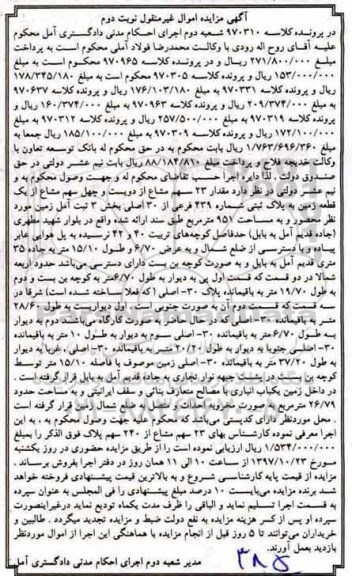 آگهی مزایده اموال غیرمنقول نوبت دوم
در پرونده کلاسه ۹۷۰۳۱۰ شعبه دوم اجرای احکام مدنی دادگستری آمل محکوم
علیه آقای روح اله رودی با وکالت محمدرضا فولاد آملی محکوم است به پرداخت
مبلغ ۲۷۱/۸۰۰/۰۰۰ ریال و در پرونده کلاسه ۹۷۰۹۶۵ محکوم است به مبلغ
۱۵۳/۰۰۰/۰۰۰ ریال و پرونده کلاسه ۹۷۰۳۰۵ محکوم است به مبلغ ۱۷۸/۳۴۵/۱۸۰
ریال و پرونده کلاسه ۹۷۰۳۳۱ به مبلغ ۱۷۶/۱۰۳/۱۸۰ ریال و پرونده کلاسه ۹۷۰۶۳۷
به مبلغ ۲۰۹/۳۷۴/۰۰۰ ریال و پرونده کلاسه ۹۷۰۹۶۳ به مبلغ ۱۶۰/۳۷۴/۰۰۰ ریال و
پرونده کلاسه ۹۷۰۳۱۹ به مبلغ ۲۵۷/۵۰۰/۰۰۰ ریال و پرونده کلاسه ۹۷۰۳۱۲ به مبلغ
۱۷۲/۱۰۰/۰۰۰ ریال و پرونده کلاسه ۹۷۰۳۰۹ به مبلغ ۱۸۵/۱۰۰/۰۰۰ ریال جمعا به
مبلغ ۱/۷۶۳/۶۹۶/۳۶۰ ریال بابت محکوم به در حق محکوم له بانک توسعه تعاون با
وکالت خدیجه فلاح و پرداخت مبلغ ۸۸/۱۸۴/۸۱۰ ریال بابت نیم عشر دولتی در حق
صندوق دولت . لذا دایره اجرا حسب تقاضای محکوم له و جهت وصول محکوم به و
نیم عشر دولتی در نظر دارد مقدار ۲۳ سهم مشاع از دویست و چهل سهم مشاع از یک
قطعه زمین به پلاک ثبتی شماره ۴۳۹ فرعی از ۳۰ اصلی بخش ۳ ثبت آمل زمین مورد
نظر محصور و به مساحت ۹۵۱ مترمربع طبق سند ارائه شده واقع در بلوار شهید مطهری
(جاده قدیم آمل به بابل) حدفاصل کوچه‌های تربیت ۴۰ و ۴۲ نرسیده به پل هوایی عابر
پیاده و با دسترسی از ضلع شمال و به عرض ۶/۷۰ و طول ۱۵/۱۰ متر به جاده ۳۵
متری قدیم آمل به بابل و به صورت کوچه بن بست دارای دسترسی می‌باشد حدود اربعه
شمالا در دو قسمت که قسمت اول پی به دیوار به طول ۶/۷۰متر به کوچه بن بست و دوم
به طول ۱۹/۷۰ متر به باقیمانده پلاک ۳۰- اصلی (که فعلا ساخته شده است) شرقا در
سه قسمت که قسمت دوم آن به صورت جنوبی است . اول دیواریست به طول ۲۸/۶۰
متر به باقیمانده ۳۰- اصلی که در حال حاضر به صورت کارگاه می‌باشد دوم به دیوار
به طول ۶/۷۰ متر به باقیمانده ۳۰- اصلی سوم به دیوار به طول ۱۰ متر به باقیمانده
۳۰- اصلی جنوبا به دیوار به طول ۲۰/۲۰ متر به باقیمانده ۳۰- اصلی . غربا به دیوار
به طول ۳۷/۲۰ متر به باقیمانده ۳۰- اصلی زمین موصوف با فاصله ۱۵/۱۰ متر توسط
کوچه بن بست در پشت جبهه نوار تجاری به جاده قدیم آمل به بابل قرار گرفته است .
در داخل زمین یکباب انباری با مصالح متعارف بنائی و سقف ایرانیتی و به مساحت حدود
۲۶/۷۹ مترمربع به صورت مخروبه احداث و در حداصل ضلع شمال زمین قرار گرفته است
. محل موردنظر دارای کدپستی می‌باشد که محکوم علیه جهت وصول محکوم به ، به این
اجرا معرفی نموده کارشناس بهای ۲۳ سهم مشاع از ۲۴۰ سهم پلاک فوق الذکر را بمبلغ
۱/۵۳۴/۰۰۰/۰۰۰ ریال ارزیابی نموده است را از طریق مزایده حضوری در روز یکشنبه
مورخ ۱۳۹۷/۱۰/۲۳ از ساعت ۱۰ الی ۱۱ همان روز در دفتر اجرا بفروش برساند .
مزایده از قیمت پایه کارشناسی شروع و به بالاترین قیمت پیشنهادی فروخته خواهد
شد برنده مزایده می‌بایست ۱۰ درصد مبلغ پیشنهادی را فی المجلس به عنوان سپرده
به قسمت اجرا تسلیم نماید و الباقی را ظرف مدت یکماه تودیع نماید درغیراینصورت
سپرده او پس از کسر هزینه مزایده به نفع دولت ضبط و مزایده تجدید میگردد . طالبین و
خریداران می‌توانند تا ۵ روز قبل از انجام مزایده با هماهنگی این اجرا از اموال موردنظر
بازدید بعمل آورند.
مدیر شعبه دوم اجرای احکام مدنی دادگستری آمل